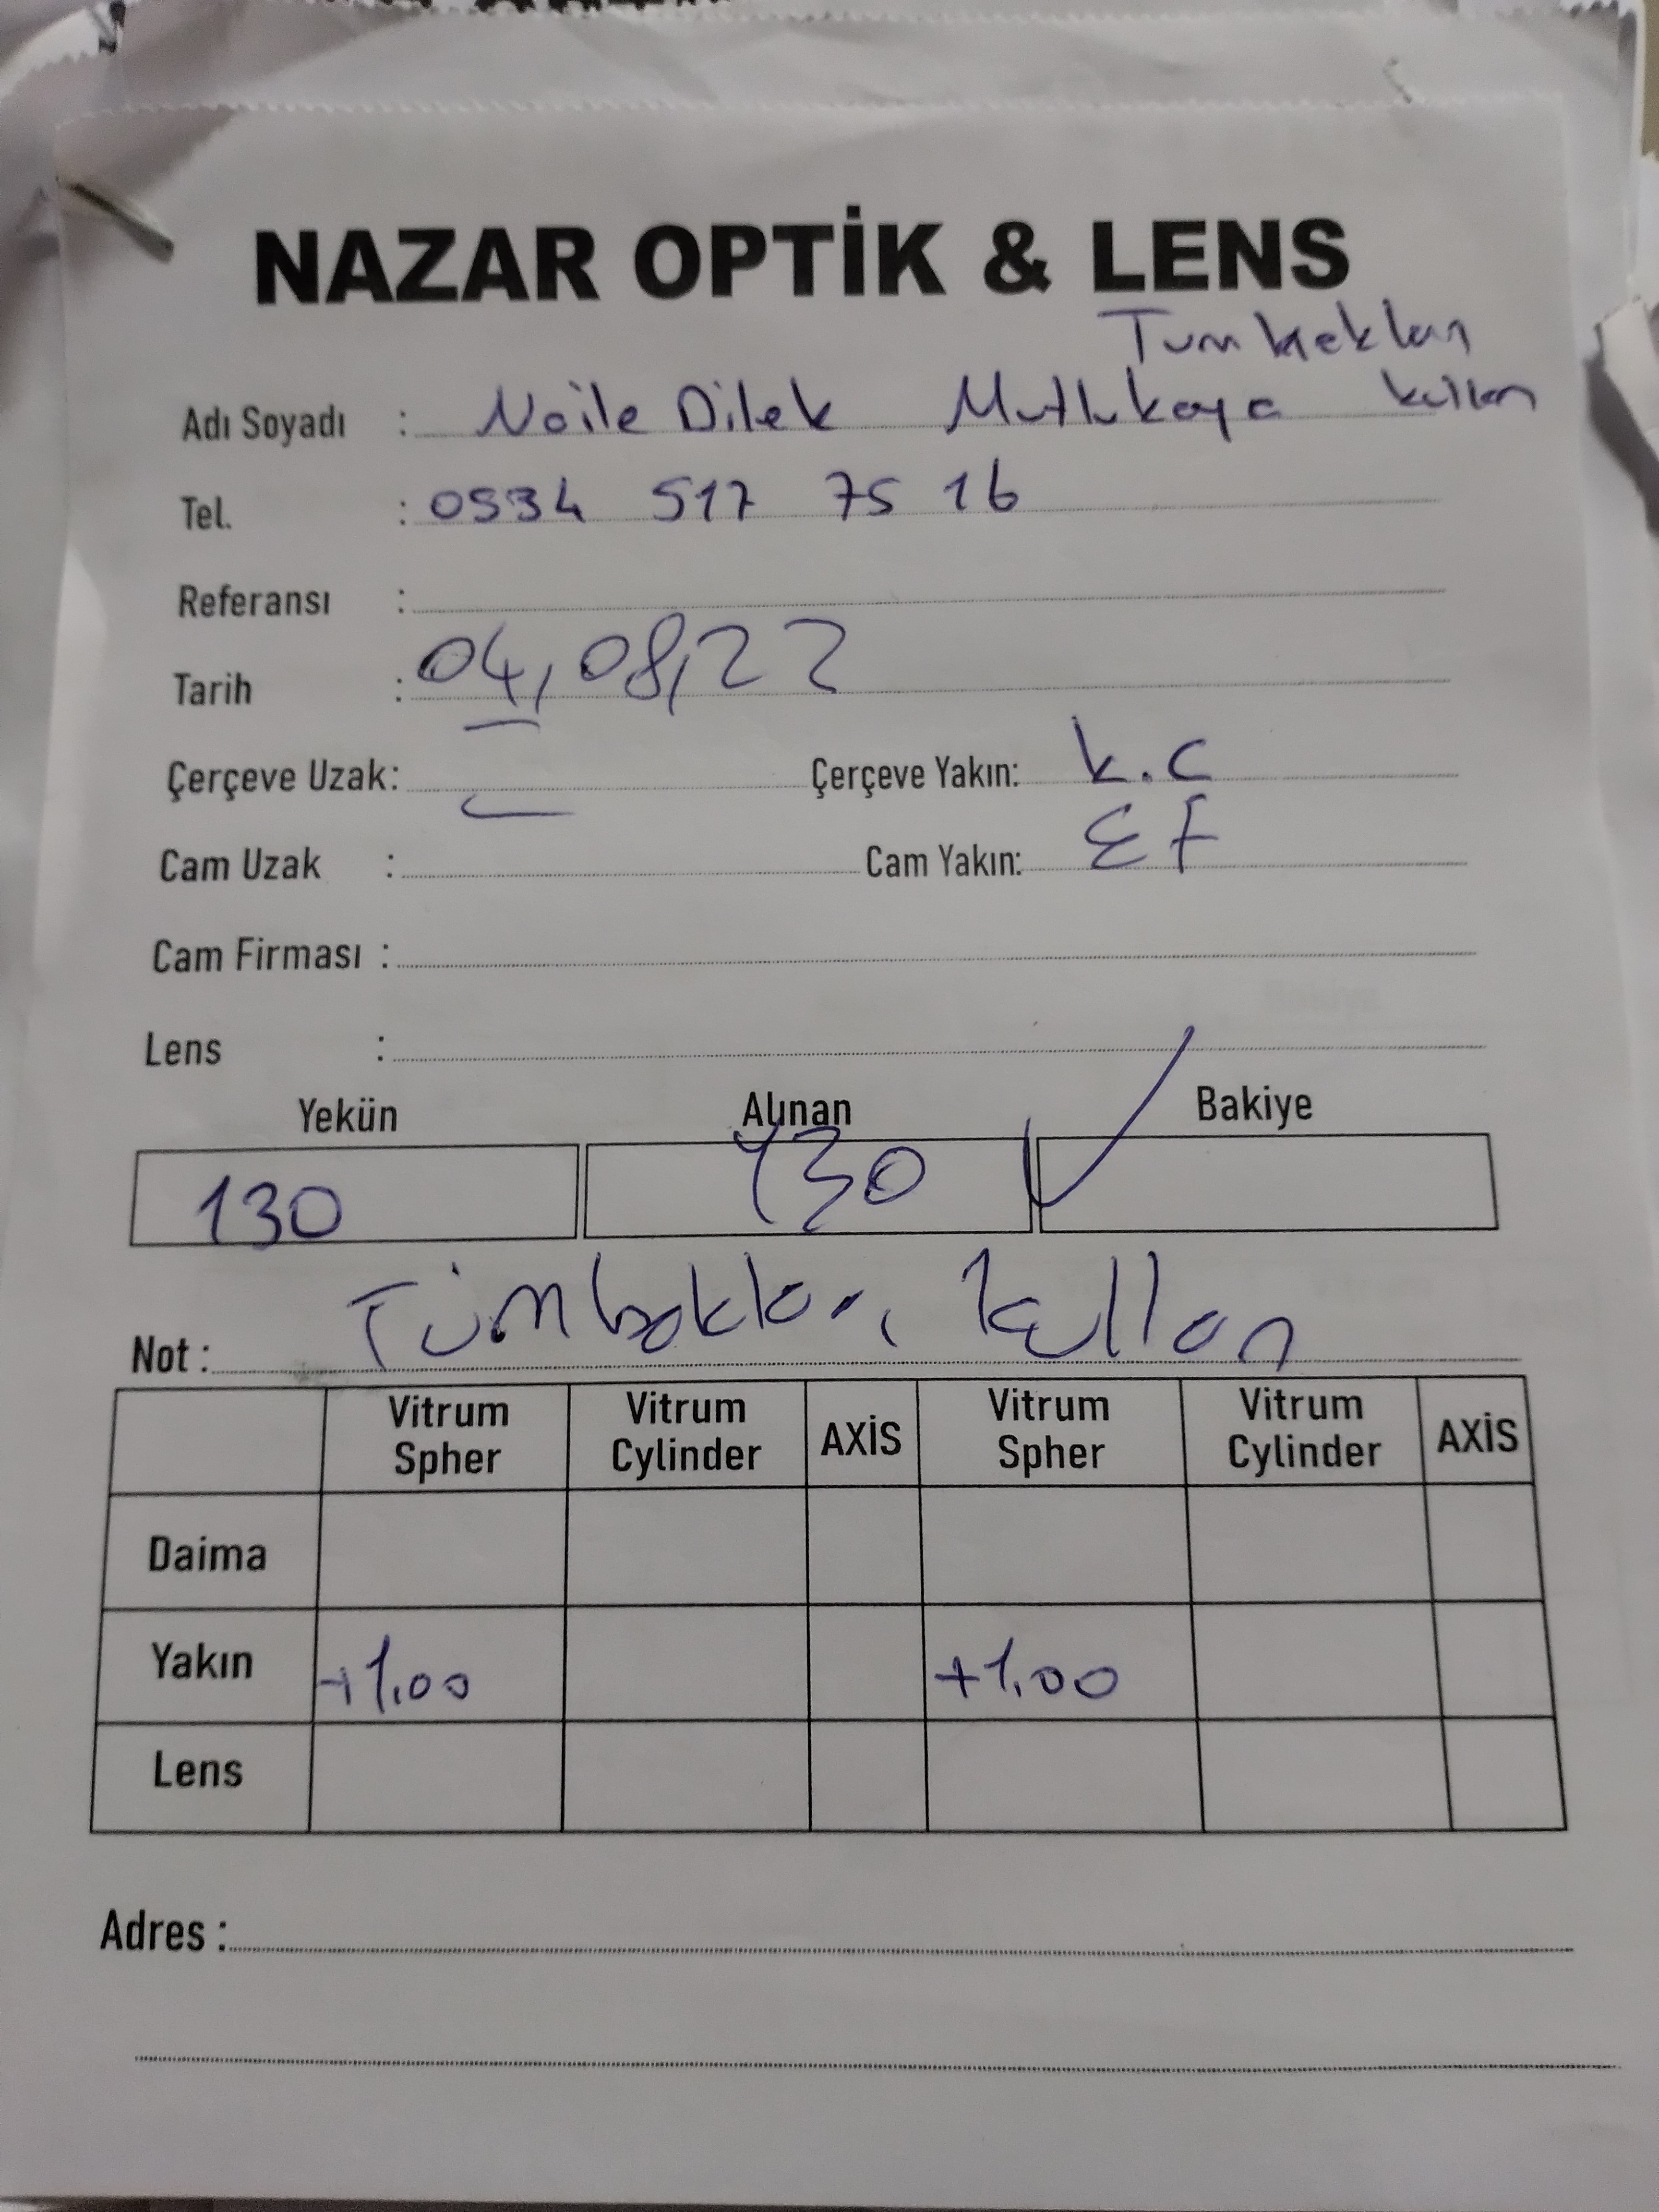 NAZAR OPTİK & LENS
Tüm hakları
Adı Soyadı : Naile Dilek Mutlukaya kullan
Tel. : 0534 517 75 16
Referansı :
Tarih : 04,08,22
Çerçeve Uzak: Çerçeve Yakın: k.c
Cam Uzak : Cam Yakın: EF
Cam Firması :
Lens :
Yekün Alınan Bakiye
130 130
Not : Tüm hakları kullan
Vitrum Spher Vitrum Cylinder AXİS Vitrum Spher Vitrum Cylinder AXİS
Daima
Yakın +1.00 +1.00
Lens
Adres :